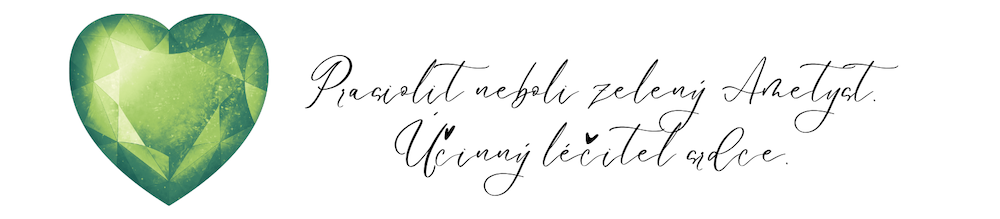 Prasiolit neboli zelený Ametyst.
Účinný léčitel srdce.